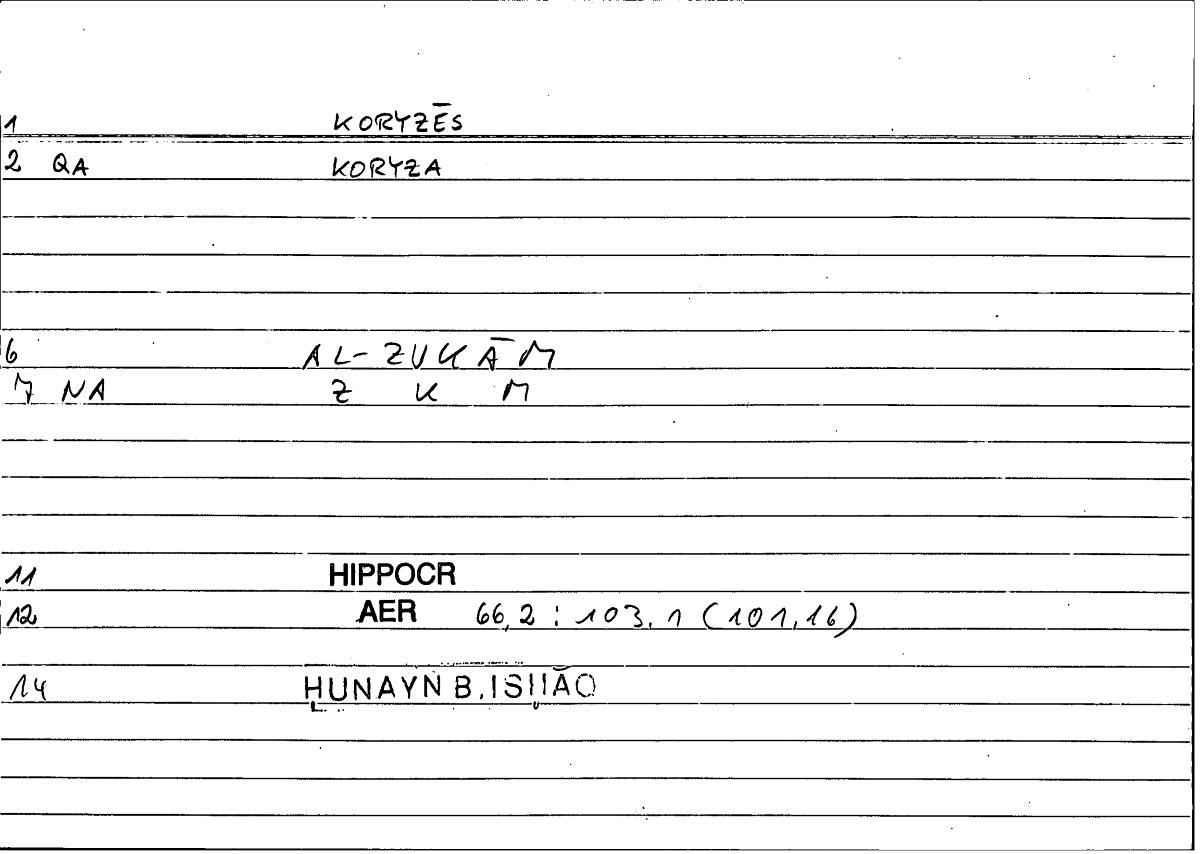 1 KORYZĒS
2 QA KORYZA
6 AL-ZUKĀM
7 NA Z K M
11 HIPPOCR
12 AER 66,2 : 103.1 (101,16)
14 ḤUNAYN B. ISḤĀQ